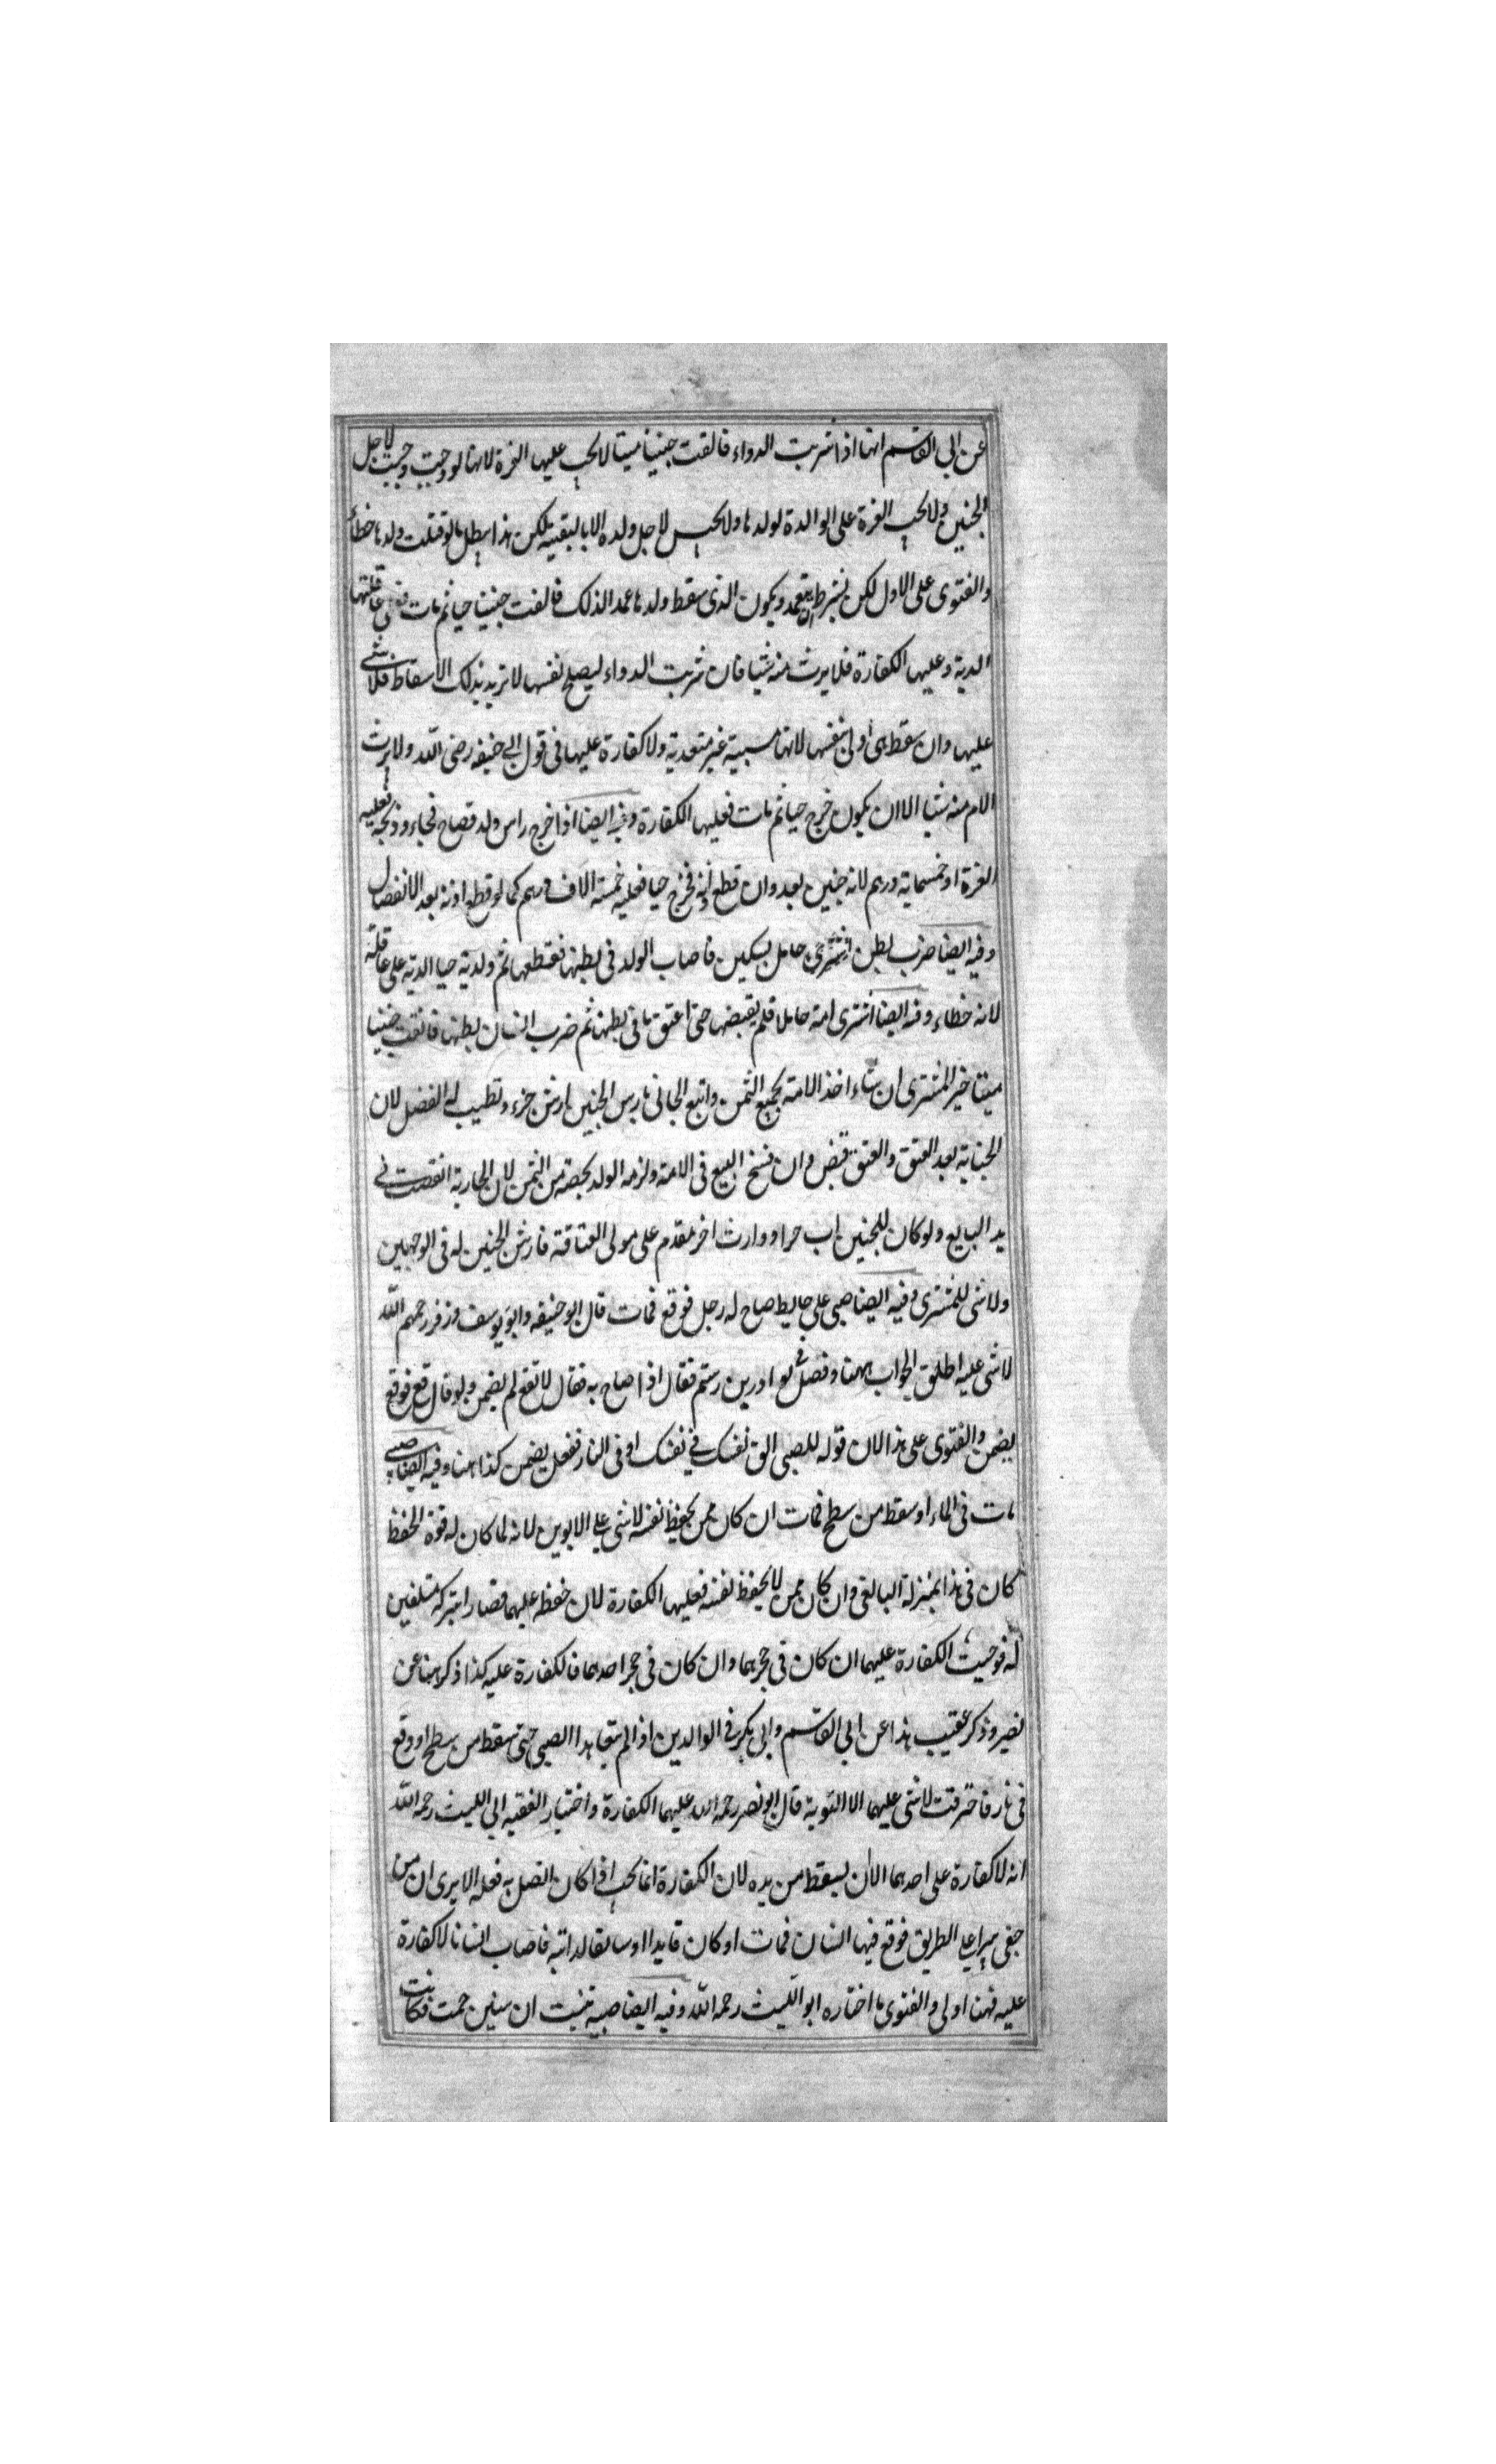 عن ابى القاسم انها اذا شربت الدواء فالقت جنينا ميتا لا يجب عليها الغرة لانها لو وجبت وجبت لاجل
الجنين ولا يجب الغرة على الوالدة لولدها ولا يجب لاجل ولده الا بالبقية لكن هذا يبطل بما لو قتلت ولدها خطاء
والفتوى على الاول لكن بشرط ان يتعمد ويكون الذى سقط ولدها عمد الذلك فالقت جنينا حيا ثم مات فعلى عاقلتها
الدية وعليها الكفارة فلا يرث منه شيا فان شربت الدواء ليصلح نفسها لا تريد بذلك الاسقاط فلا شى
عليها وان سقط هى اولى بنفسها لانها مسببة غير متعدية ولا كفارة عليها فى قول ابى حنيفه رضى الله ولا يرث
الام منه شيا الا ان يكون خرج حيا ثم مات فعليها الكفارة وفيه ايضا اذا خرج راس ولد فصاح فجاء وذبحه فعليه
الغرة او خمسماية درهم لانه جنين بعد وان قطع اذنه فخرج حيا فعليه خمسة الاف درهم كما لو قطع اذنه بعد الانفصال
وفيه ايضا ضرب بطن حامل بسكين فاصاب الولد فى بطنها فقطعها ثم ولدته حيا الدية على عاقلته
لانه خطاء وفيه ايضا اشترى امة حاملا فلم يقبضها حتى اعتق ما فى بطنها ثم ضرب انسان بطنها فالقت جنينا
ميتا خير المشترى ان شاء اخذ الامة بجميع الثمن واتبع الجانى بارش الجنين ارش حره وتطيب له الفضل لان
الجناية بعد العتق والعتق قبض وان فسخ البيع فى الامة ولزمه الولد بحصته من الثمن لان الجارية انقصت فى
يد البايع ولو كان للجنين اب حر او وارث اخر مقدم على مولى العتاقة فارش الجنين له فى الوجهين
ولا شى للمشترى وفيه ايضا صبى على حايط صاح له رجل فوقع فمات قال ابو حنيفه وابو يوسف وزفر رحمهم الله
لا شى عليه اطلق الجواب ههنا وفصل فى نوادر بن رستم فقال اذا صاح به فقال لا تقع لم يضمن ولو قال قع فوقع
يضمن والفتوى على هذا لان قوله للصبى الق نفسك فى نفسك او فى النار ففعل يضمن كذا هنا وفيه ايضا صبى
مات فى الماء او سقط من سطح فمات ان كان ممن يحفظ نفسه لا شى على الابوين لانه لما كان له قوة الحفظ
كان فى هذا بمنزلة البالغ وان كان ممن لا يحفظ نفسه فعليها الكفارة لان حفظه عليهما فصارا بتركه متلفين
له فوجبت الكفارة عليهما ان كان فى حجرهما وان كان فى حجر احدهما فالكفارة عليه كذا ذكر هنا عن
نصير وذكر عقيب هذا عن ابى القاسم وابى بكر فى الوالدين اذا لم يتعاهدا الصبى حتى سقط من سطح او وقع
فى نار فاحترقت لا شى عليهما الا التوبة قال ابو نصر رحمه الله عليهما الكفارة واختيار الفقيه ابى الليث رحمه الله
انه لا كفارة على احدهما الا ان يسقط من يده لان الكفارة انما يجب اذا كان اتصل به فعله الا يرى ان من
حفر بيرا على الطريق فوقع فيها انسان فمات او كان قايدا او سايقا لدابته فاصاب انسانا لا كفارة
عليه فهنا اولى والفتوى ما اختاره ابو الليث رحمه الله وفيه ايضا صبية بنت سنين حمت فكانت